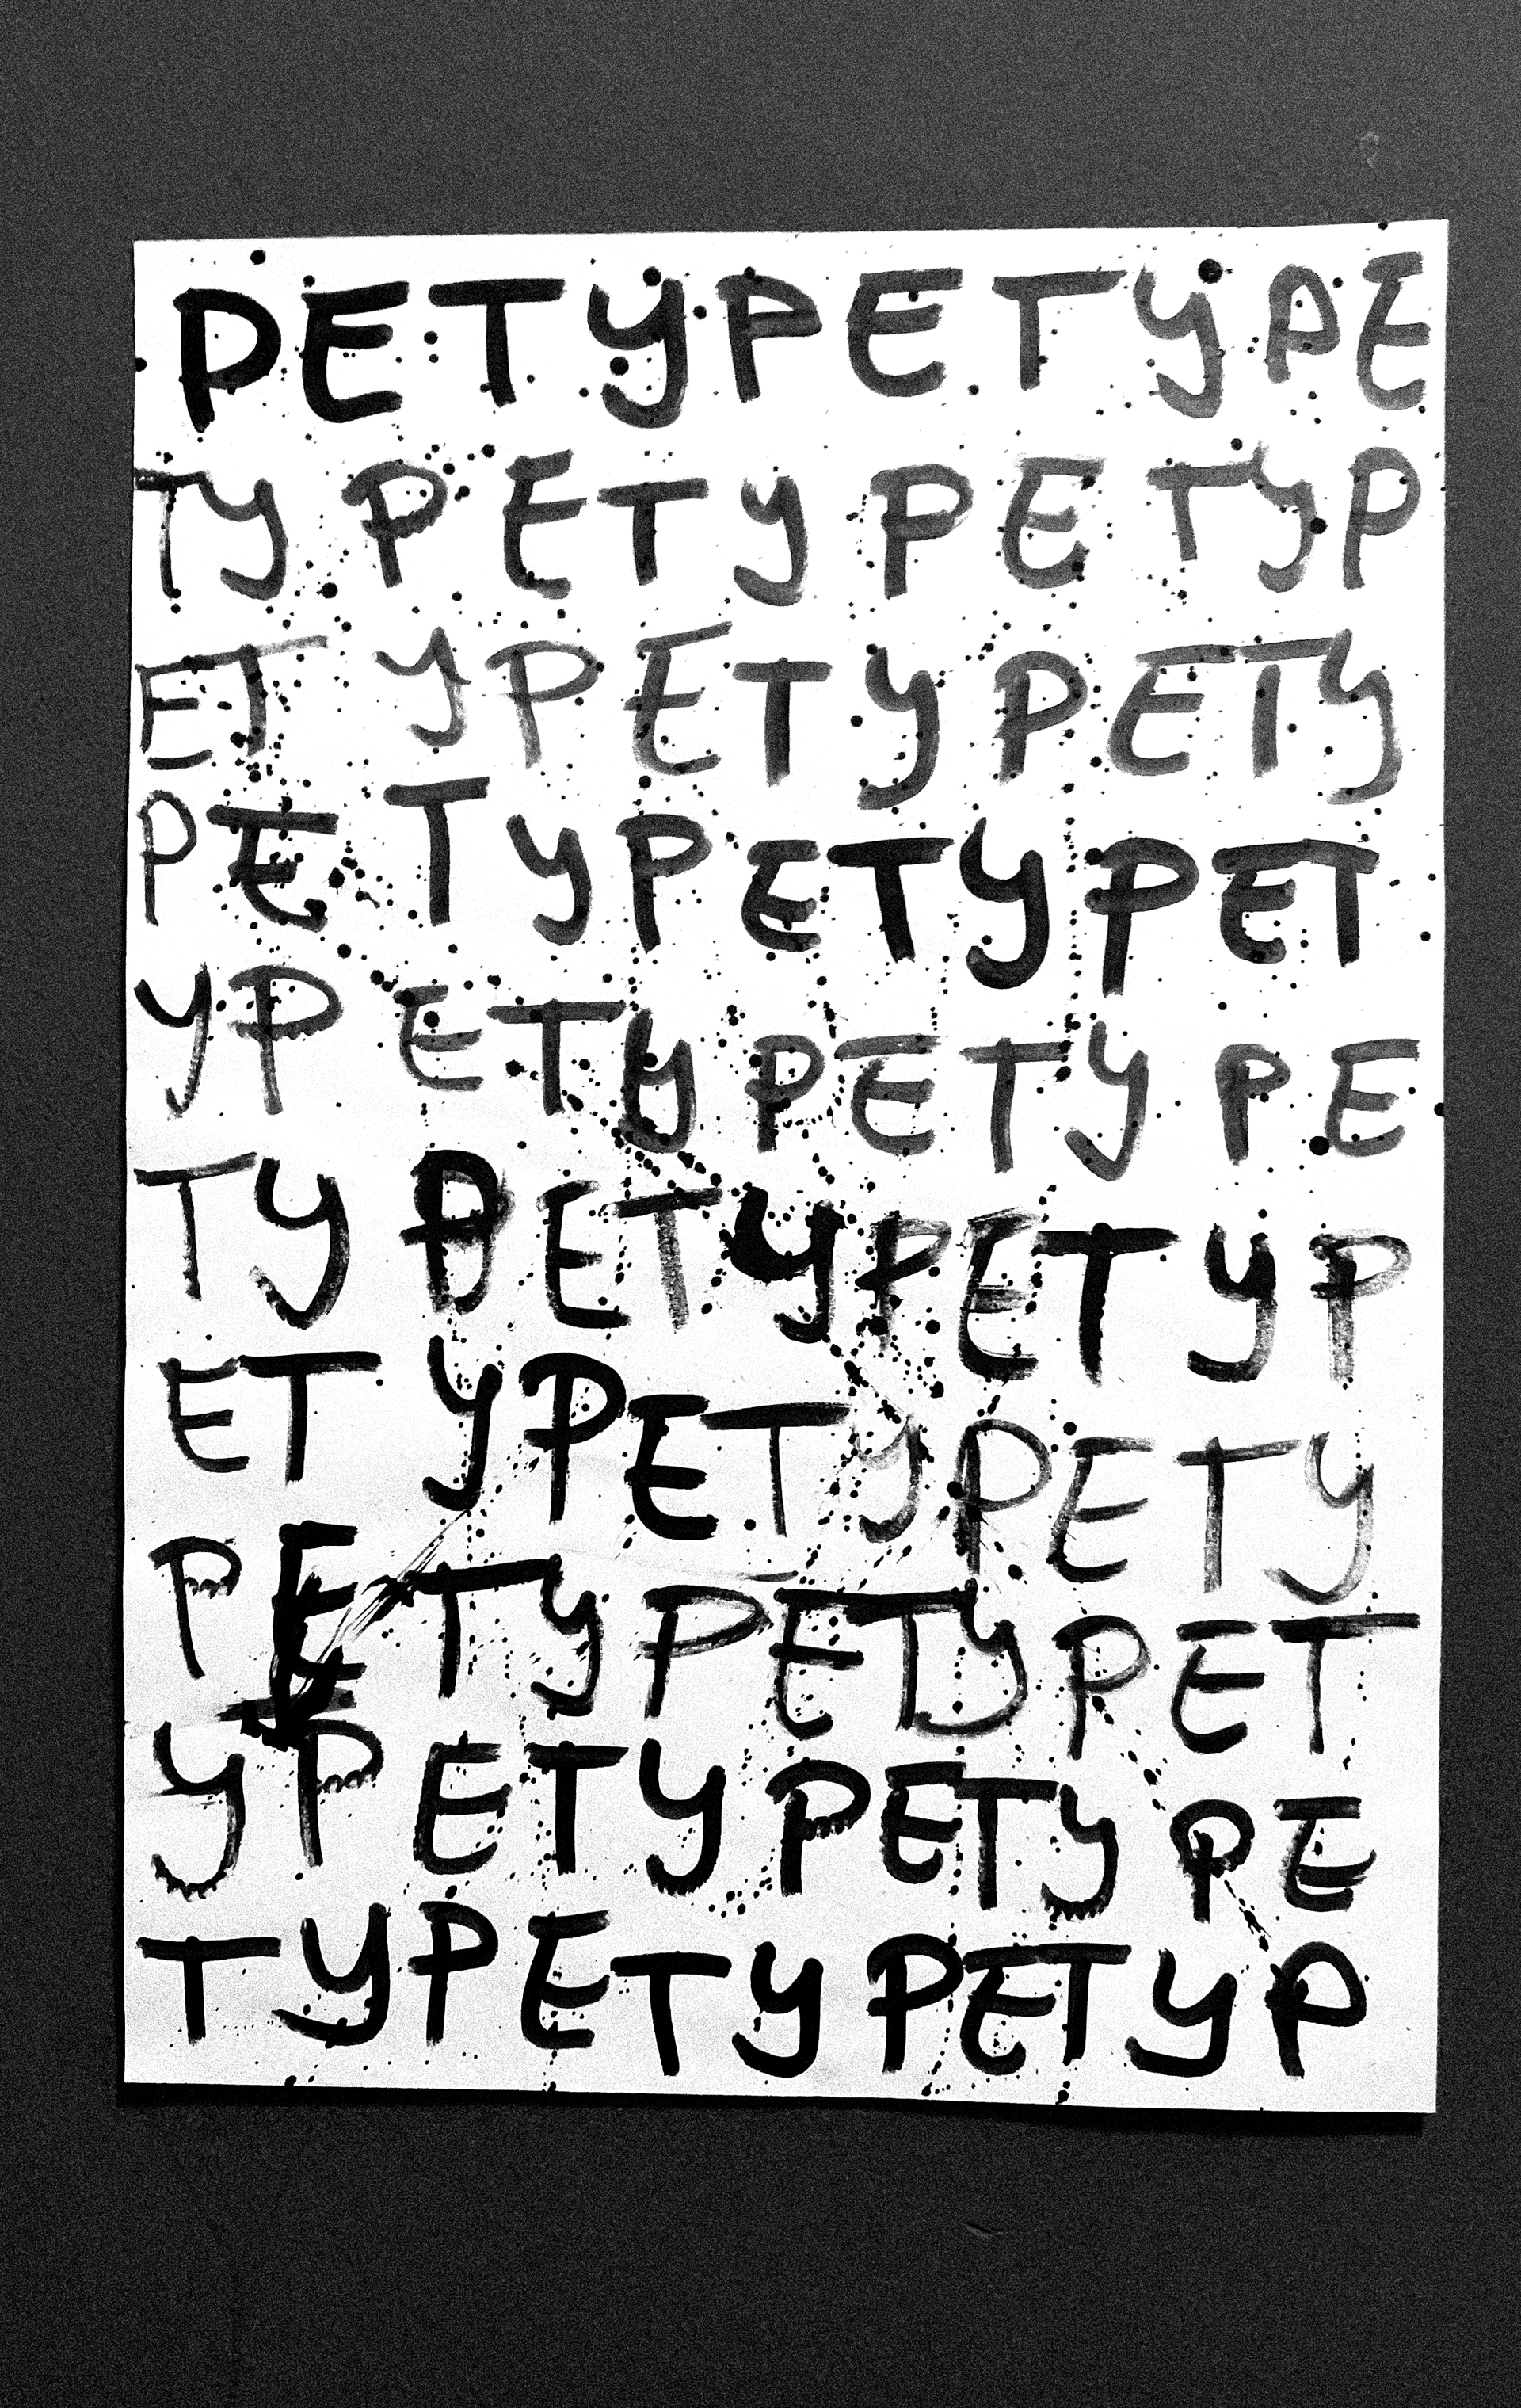 PETYPETYPE
TYPETYPETYP
ETYPETYPETY
PETYPETYPET
YPETYPETYPE
TYPETYPETYP
ETYPETYPETY
PETYPETYPET
YPETYPETYPE
TYPETYPETYP